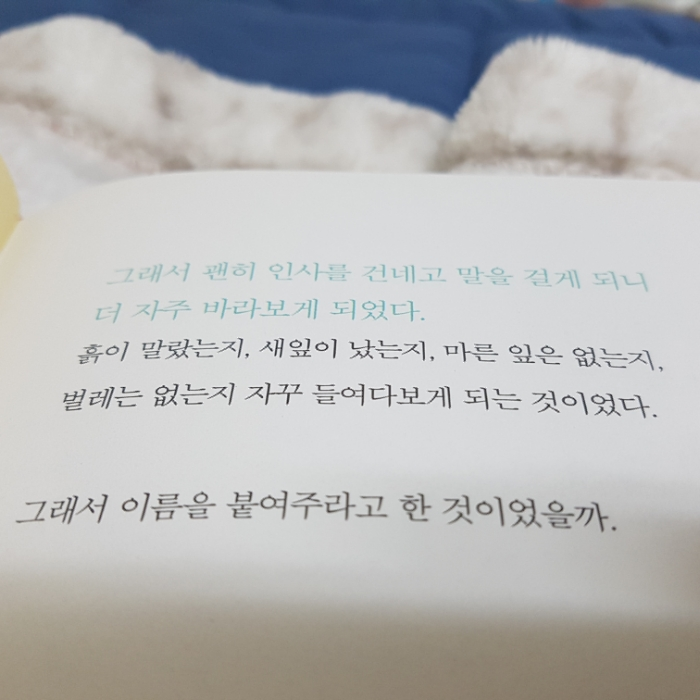 그래서 괜히 인사를 건네고 말을 걸게 되니
더 자주 바라보게 되었다.
흙이 말랐는지, 새잎이 났는지, 마른 잎은 없는지,
벌레는 없는지 자꾸 들여다보게 되는 것이었다.
그래서 이름을 붙여주라고 한 것이었을까.